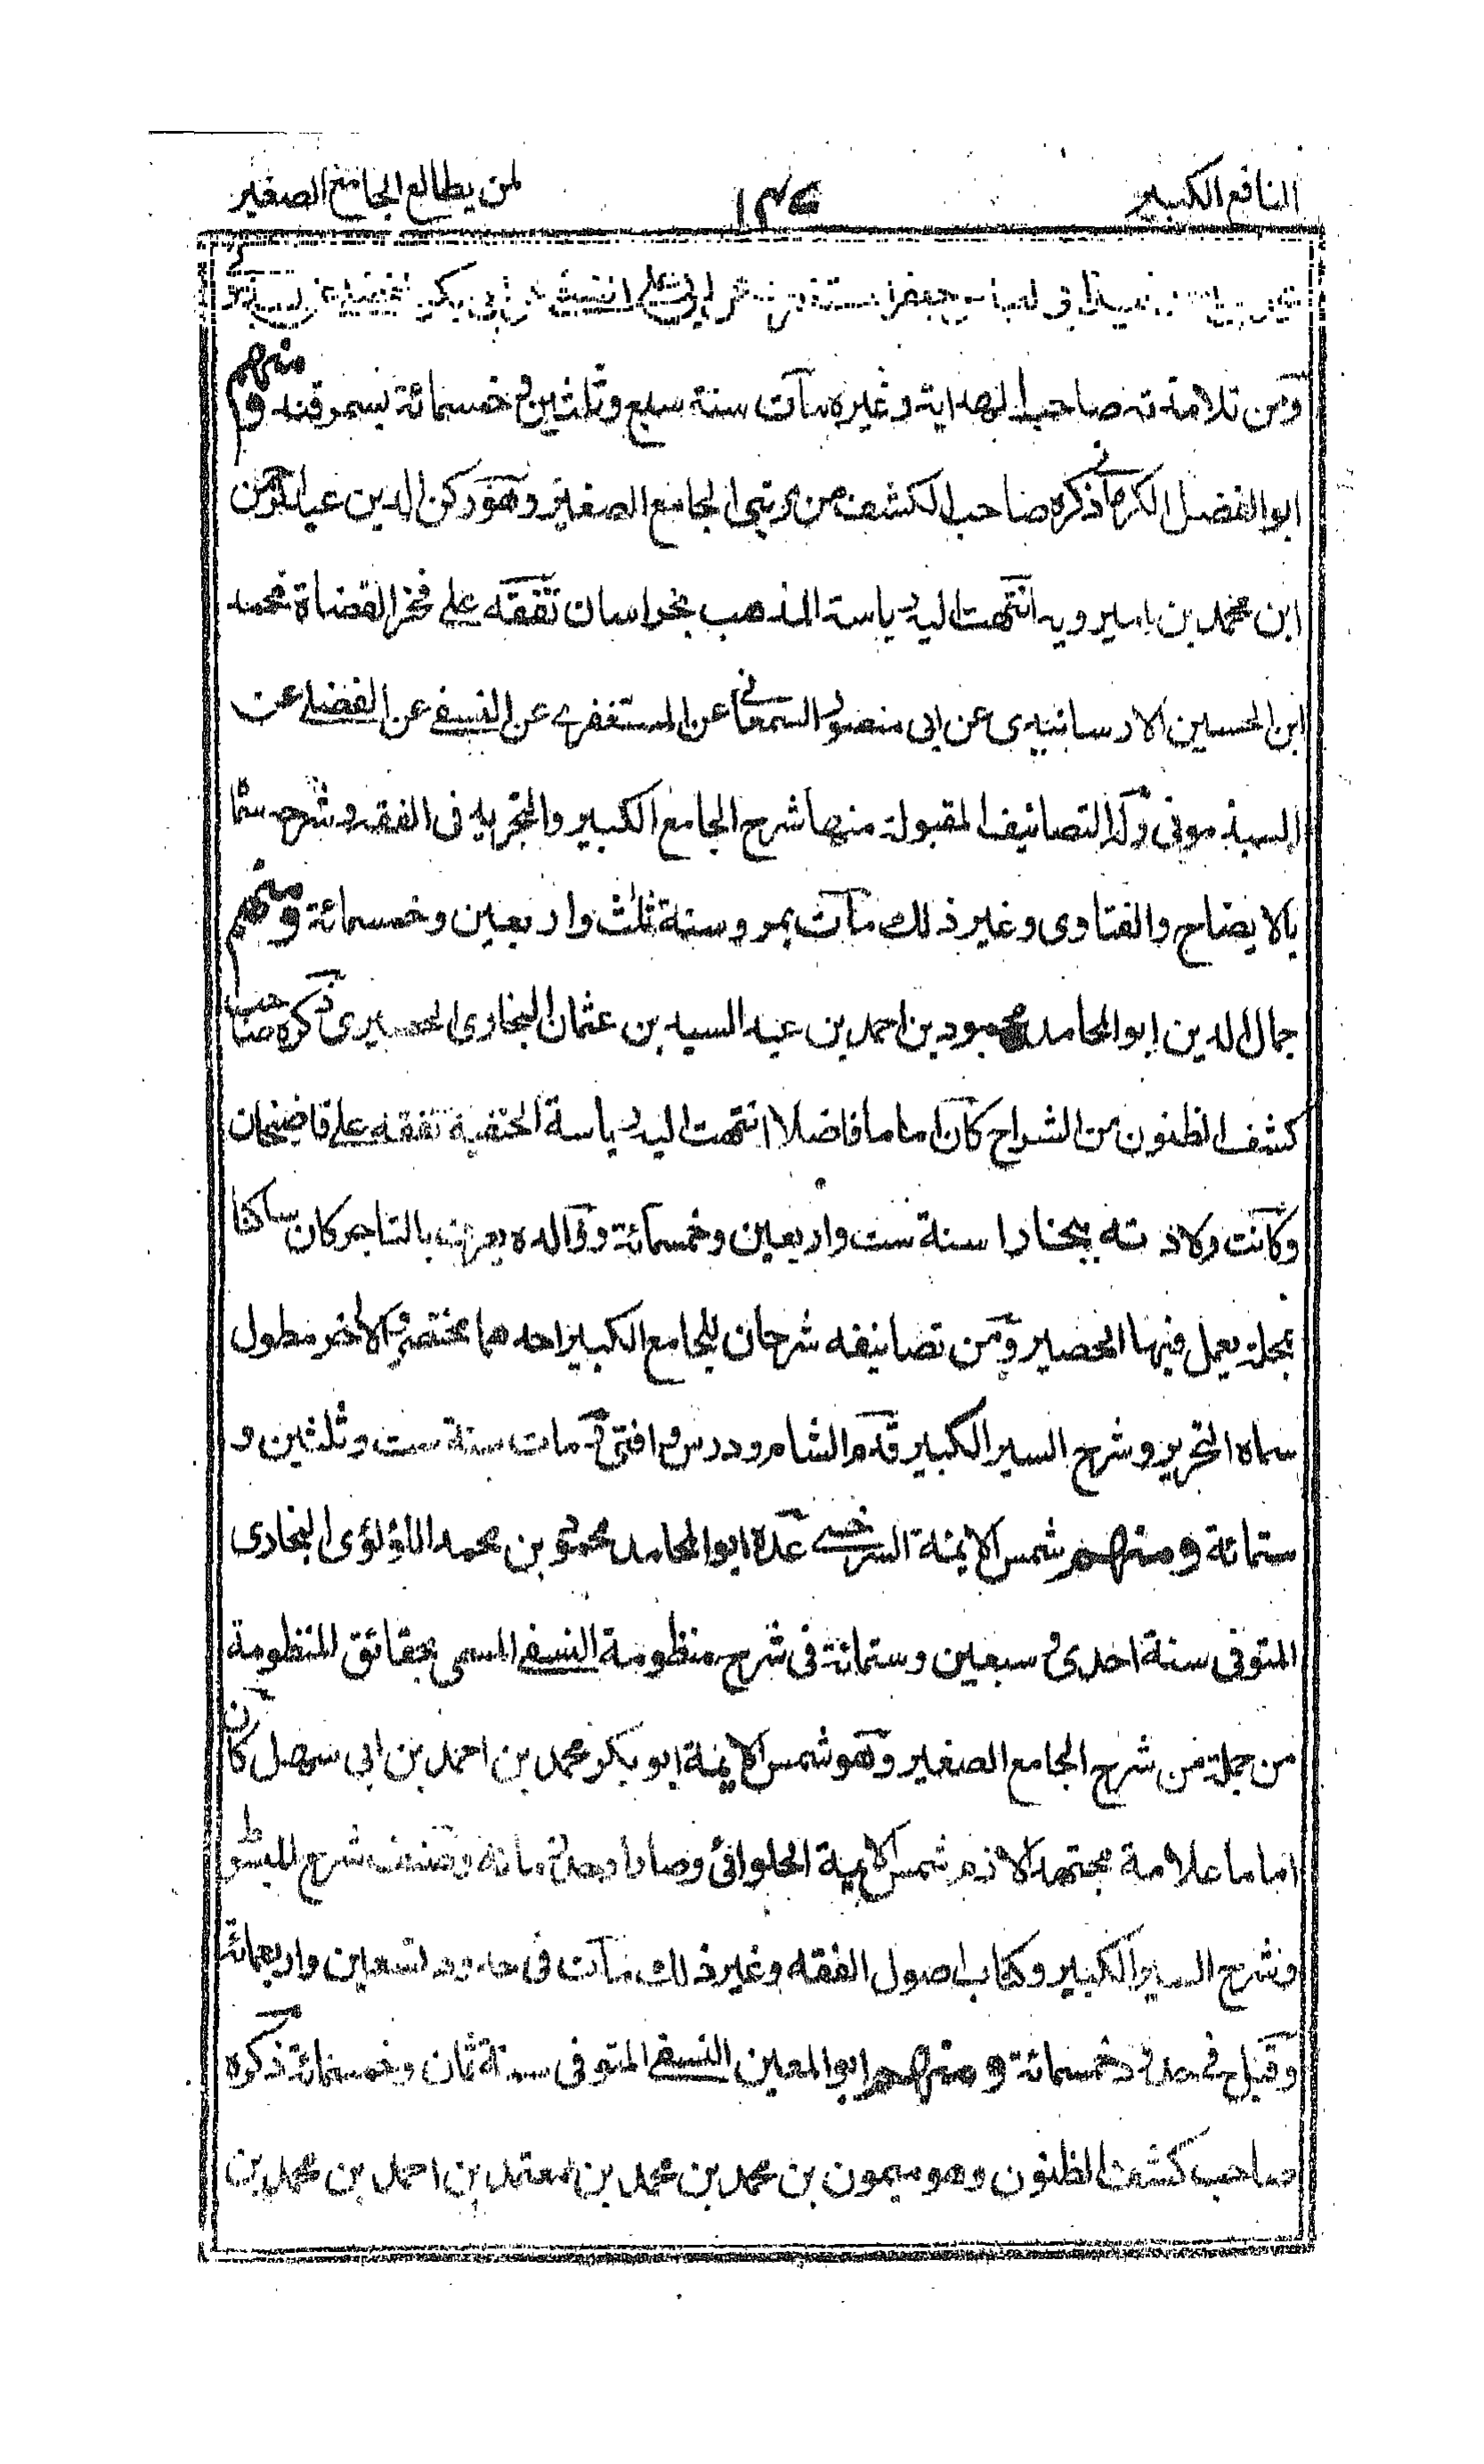 النافع الكبير
١٣٤
لمن يطالع الجامع الصغير
ابي علي النسفي عن ابي بكر
ومن تلامذته صاحب الهداية وغيره مات سنة سبع وثلثين وخمسمائة بسمرقند ومنهم
ابو الفضل الكرماني ذكره صاحب الكشف من مرتبي الجامع الصغير وهو ركن الدين عبد الرحمن
ابن محمد بن اميرويه انتهت اليه رياسة المذهب بخراسان تفقه على فخر القضاة محمد
ابن الحسين الارسابندي عن ابي منصور السمعاني عن المستغفري عن النسفي عن الفضلي عن
السبذموني وله التصانيف المقبولة منها شرح الجامع الكبير والتجريد في الفقه وشرحه سماه
بالايضاح والفتاوى وغير ذلك مات بمرو سنة ثلث واربعين وخمسمائة ومنهم
جمال الدين ابو المحامد محمود بن احمد بن عبد السيد بن عثمان البخاري الحصيري ذكره صاحب
كشف الظنون من الشراح كان اماما فاضلا انتهت اليه رياسة الحنفية تفقه على قاضيخان
وكانت ولادته ببخارا سنة ست واربعين وخمسمائة ووالده يعرف بالتاجر كان ساكنا
بمحلة يعمل فيها الحصير ومن تصانيفه شرحان للجامع الكبير احدهما مختصر والاخر مطول
سماه التحرير وشرح السير الكبير قدم الشام ودرس وافتى ومات سنة ست وثلثين و
ستمائة ومنهم شمس الائمة السرخسي عده ابو المحامد محمود بن محمد اللؤلؤي البخاري
المتوفى سنة احدى وسبعين وستمائة في شرح منظومة النسفي المسمى بحقائق المنظومة
من جملة من شرح الجامع الصغير وهو شمس الائمة ابو بكر محمد بن احمد بن ابي سهل كان
اماما علامة مجتهدا لازم شمس الائمة الحلوائي وصار اوحد زمانه وصنف شرح المبسوط
وشرح السير الكبير وكتاب اصول الفقه وغير ذلك مات في حدود تسعين واربعمائة
وقيل في حدود خمسمائة ومنهم ابو المعين النسفي المتوفى سنة ثمان وخمسمائة ذكره
صاحب كشف الظنون وهو ميمون بن محمد بن محمد بن معتمد بن احمد بن محمد بن